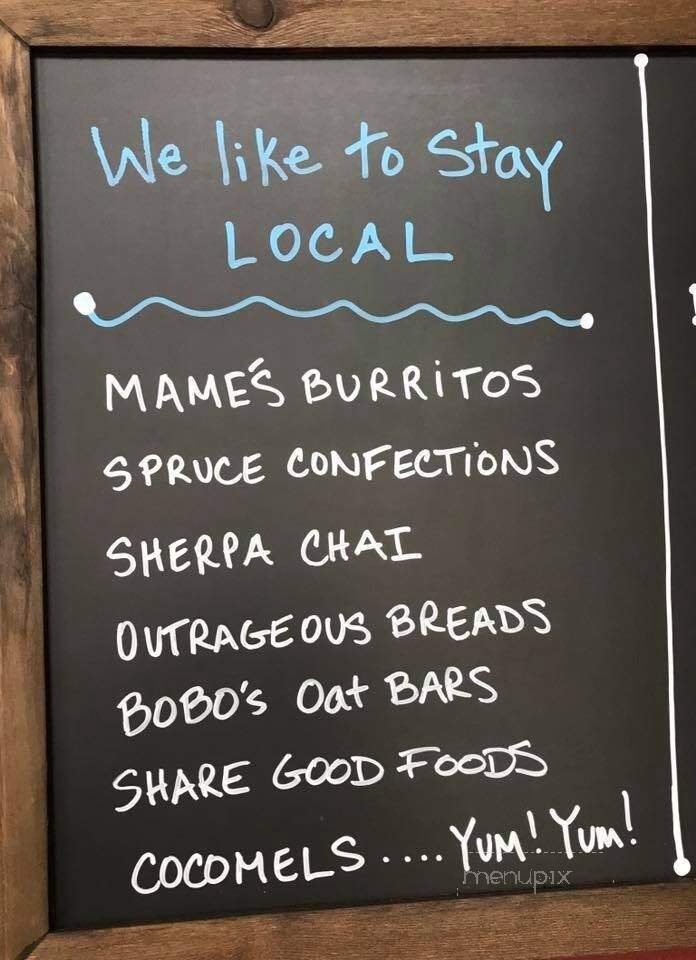 We like to Stay
LOCAL
MAME'S BURRiTOS
SPRUCE CONFECTiONS
SHERPA CHAI
OUTRAGEOUS BREADS
BOBO's Oat BARS
SHARE GOOD FOODS
COCOMELS .... YUM! YUM!
menupix